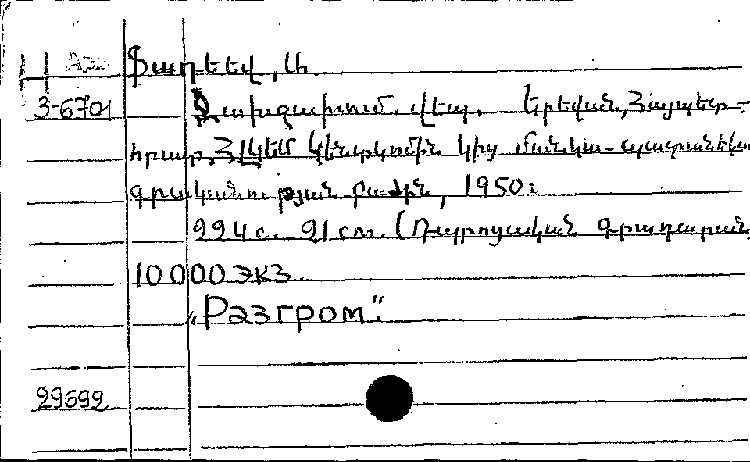 Ֆադեեվ, Ա.
3-6701 Ջախջախում. վեպ. Երեվան, Հայպետ-
հրատ, ՀԼԿԵՄ Կենտկոմին կից մանկա-պատանեկան
գրականության բաժին, 1950։
224 с. 21 см. (Դպրոցական գրադարան
10 000 экз.
"Разгром".
29692